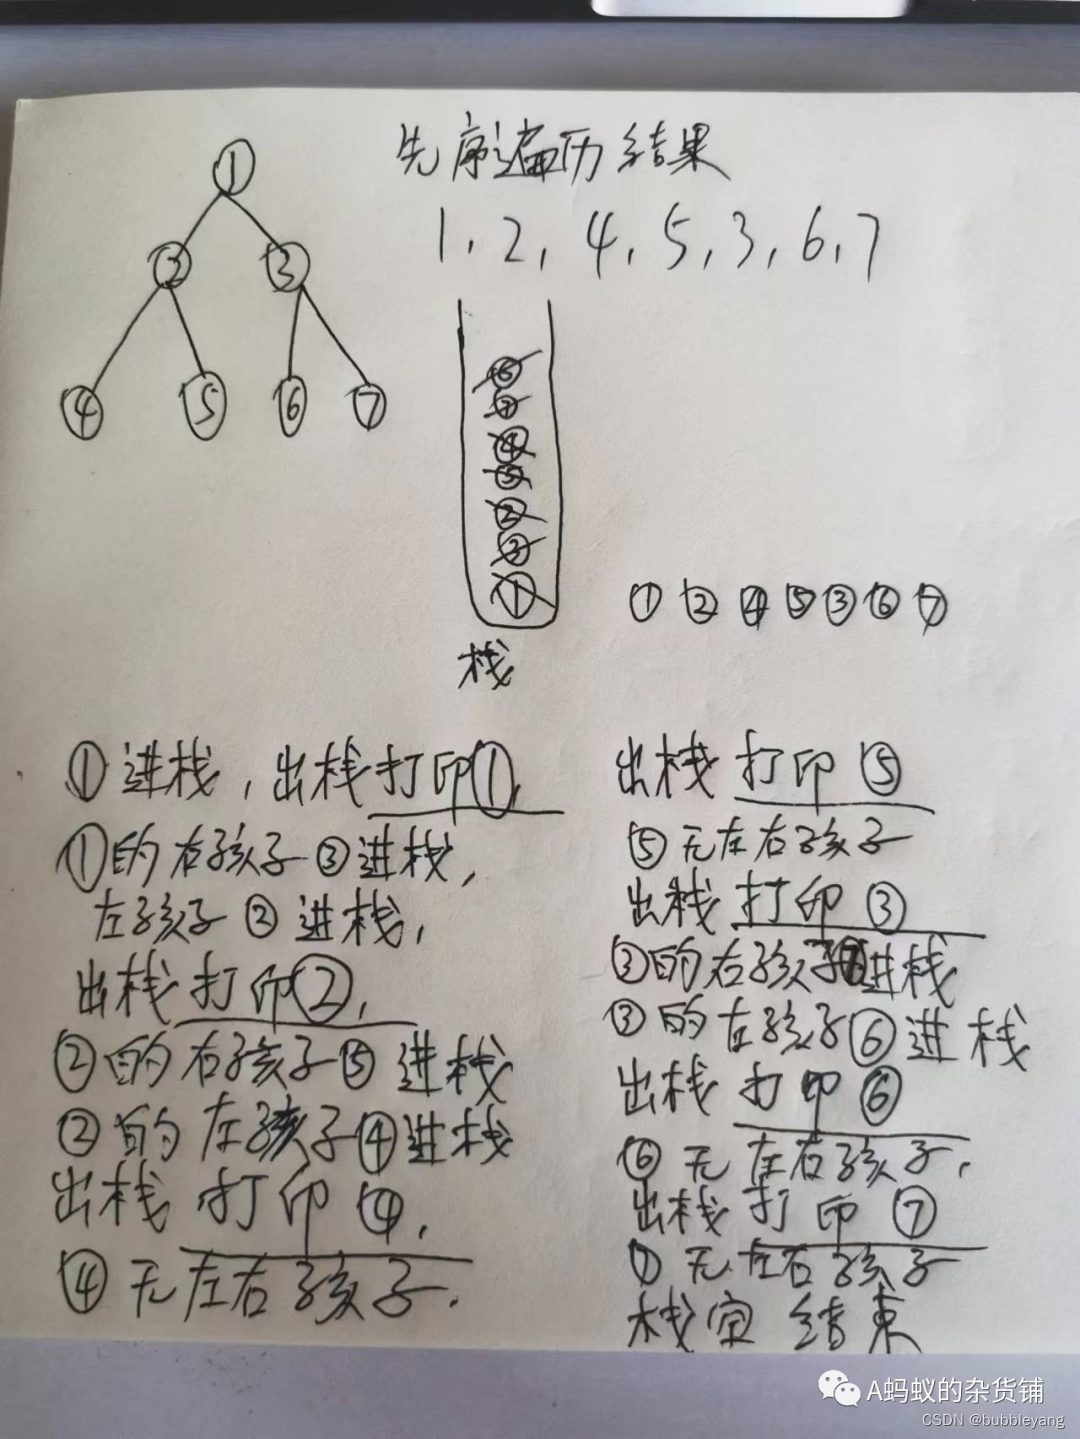 先序遍历结果
1, 2, 4, 5, 3, 6, 7
①
② ③
④ ⑤ ⑥ ⑦
⑥
⑦
④
⑤
②
③
①
栈
① ② ④ ⑤ ③ ⑥ ⑦
① 进栈，出栈打印①，
①的右孩子③进栈，
左孩子②进栈，
出栈打印②，
②的右孩子⑤进栈
②的左孩子④进栈
出栈 打印④，
④无左右孩子．
出栈 打印⑤
⑤无左右孩子
出栈 打印③
③的右孩子⑦进栈
③的左孩子⑥进栈
出栈 打印⑥
⑥无左右孩子，
出栈 打印⑦
⑦无左右孩子
栈空 结束
A蚂蚁的杂货铺
CSDN @bubbleyang